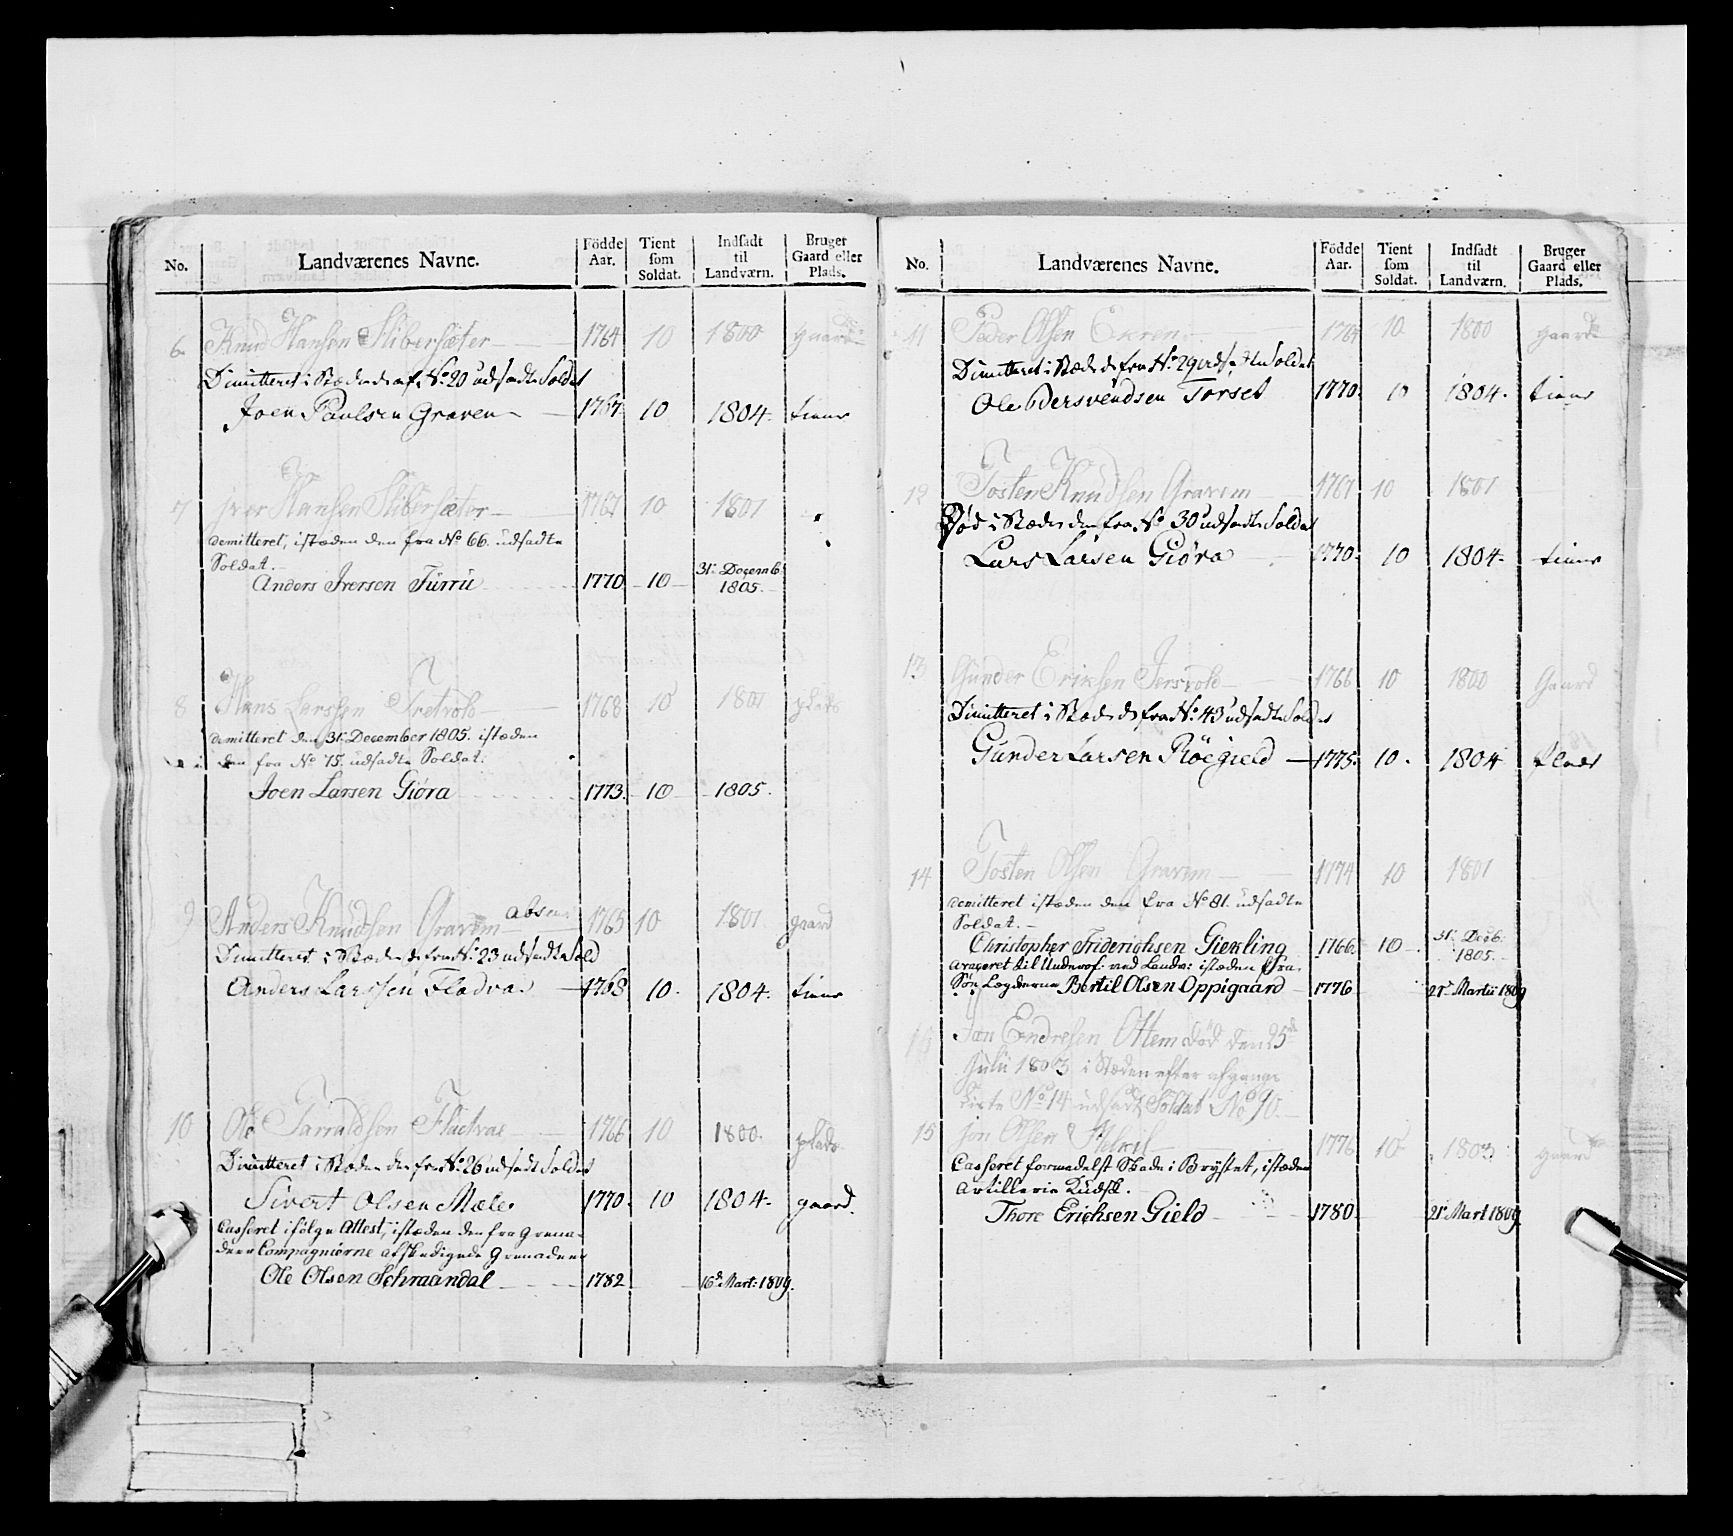 No. Landværenes Navne. Födde Aar. Tient som Soldat. Indsadt til Landværn. Bruger Gaard eller Plads.
6. Knud Hansen Slibersæter 1764 10 1800 gaard
Dimitteret i Stæden af No 20 udsadte Soldat
Joen Paulsen Graven 1767 10 1804. tiener
7 Jver Hansen Slibersæter 1767 10 1801 "
demitteret, istæden den fra No 66. udsadte
Soldat.
Anders Iversen Furru 1770 10 31. Decemb. 1805.
8 Hans Larssen Tretvold 1768 10 1801 plads
demitteret den 31. December 1805. istæden
den fra No 75. udsadte Soldat.
Joen Larsen Giöra 1773. 10 1805.
9 Anders Knudsen Gravem absen. 1765 10 1801 gaard
Dimitteret i Stæden den fra No. 23 udsadte Sold
Anders Larssen Fladvad 1768 10. 1804. tiener
10 Ole Tarraldsen Flaetvae 1766 10 1800. plads
Dimitteret i Stæden den fra No. 26 udsadte Soldat
Sivert Olsen Mæle 1770. 10 1804. gaard.
Casseret ifölge Attest, istæden den fra Grena-
deer Compagnierne afskedigede Grenadeer
Ole Olsen Schraandal 1782 16de Mart: 1809.
No. Landværenes Navne. Födde Aar. Tient som Soldat. Indsadt til Landværn. Bruger Gaard eller Plads.
11 Peder Olsen Ekren 1764 10 1800 gaard
Dimitteret i Stæden den fra No. 29 udsadte Soldat
Ole Torset 1770. 10 1804. tiener
12 Tosten Knudsen Gravem 1767 10 1801
Död i Stæden den fra No. 30 udsadte Soldat
Lars Larsen Giöra 1770. 10 1804. tiener
13 Gunder Eriksen Jersvold 1766 10 1800 Gaard
Dimitteret i Stæden den fra No. 43 udsadte Soldat
Gunder Larsen Röegield 1775. 10. 1804 Plads
14 Tosten Olsen Gravem 1774 10 1801
demitteret istæden den fra No 81. udsadte
Soldat.
Christopher Friderichsen Giekling 1766. 10 31. Decb. 1805.
avanceret til Underof: ved Landv: istæden fra
Søe Lægderne Bertil Olsen Oppigaard 1776 21de Martii 1809
15 Jon Endresen Ottem död den 25de
Julii 1803 i Stæden efter afgangs
Liste No 14 udsadt Soldat No 90.
15 Jon Olsen 1776 10 1803 gaard
Casseret formedelst Skade i Brystet, istæden
Artillerie Kudsk.
Thore Erichsen Gield 1780. 21de Mart 1809.